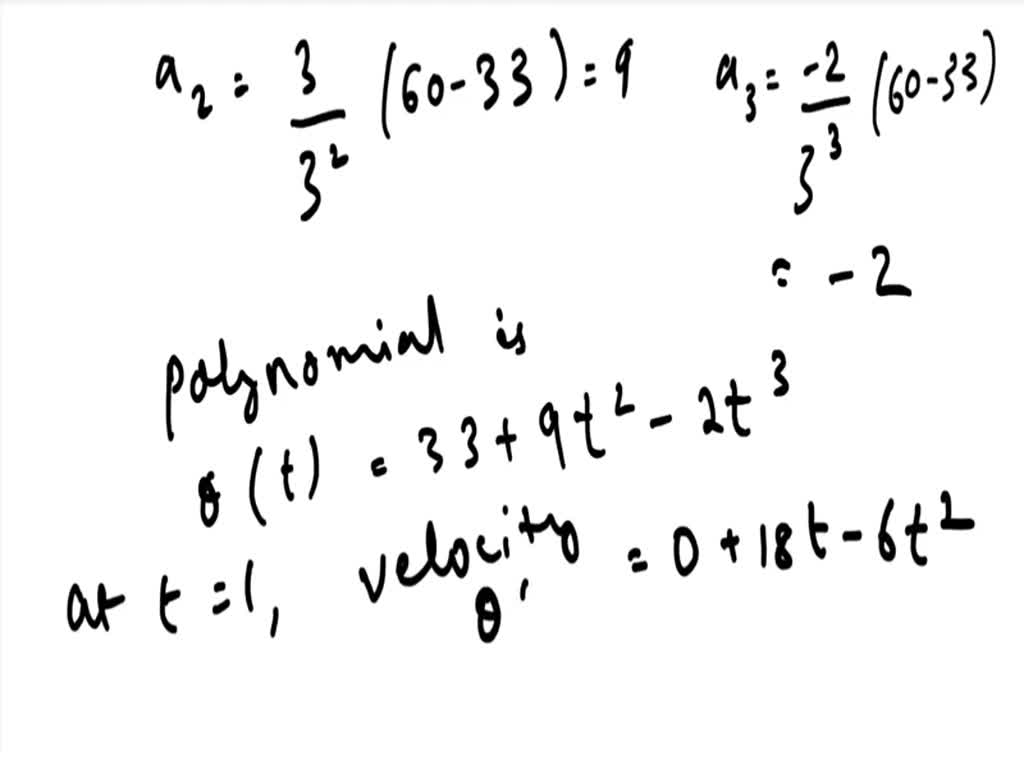 a₂ = 3/3² (60-33) = 9 a₃ = -2/3³ (60-33)
= -2
polynomial is
θ(t) = 33 + 9t² - 2t³
at t = 1, velocity θ' = 0 + 18t - 6t²